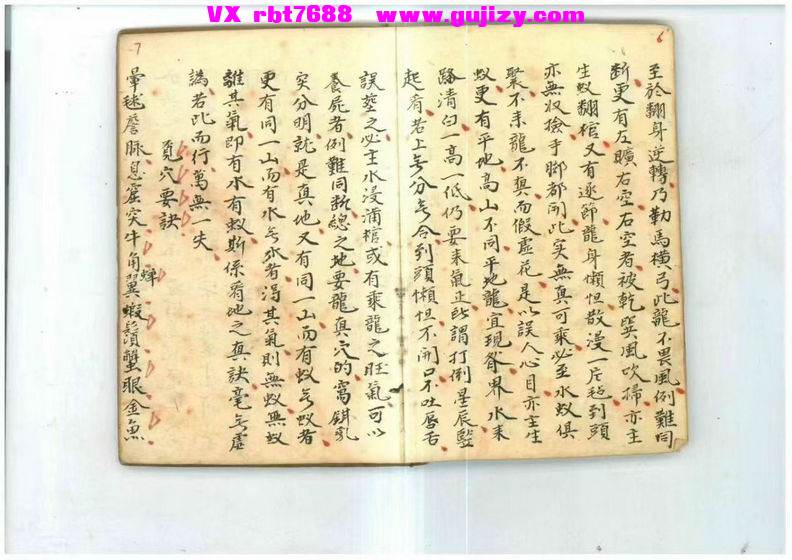 VX rbt7688 www.gujizy.com
6
至於翻身逆轉乃勒馬橫弓此龍不畏風例難同
斷更有左曠右空右空者被乾巽風吹掃亦主
生蚁翻棺又有逐節龍身懶怛散漫一片趋到頭
亦無収撿手腳都闭此实無真可乘必至水蚁俱
聚不未龍不真而假虛花是以誤人心目亦主生
蚁更有平地高山不同平地龍宜現脊界水来
路清白一高一低仍要来氣正所謂打倒星辰竪
起看若上無分無合到頭懶怛不開口不吐唇舌
7
誤塟之必主水浸滿棺或有乘龍之旺氣可以
養屍者例難同斷總之地要龍真穴的窩鉗乳
突分明就是真地又有同一山而有蚁無蚁者
更有同一山而有水無水者得其氣則無蚁無蚁
離其氣即有水有蚁斯係看地之真訣毫無虛
譌若此而行萬無一失
覓穴要訣
暈毬簷脈息窟突牛角蟬翼蝦鬚蟹眼金魚